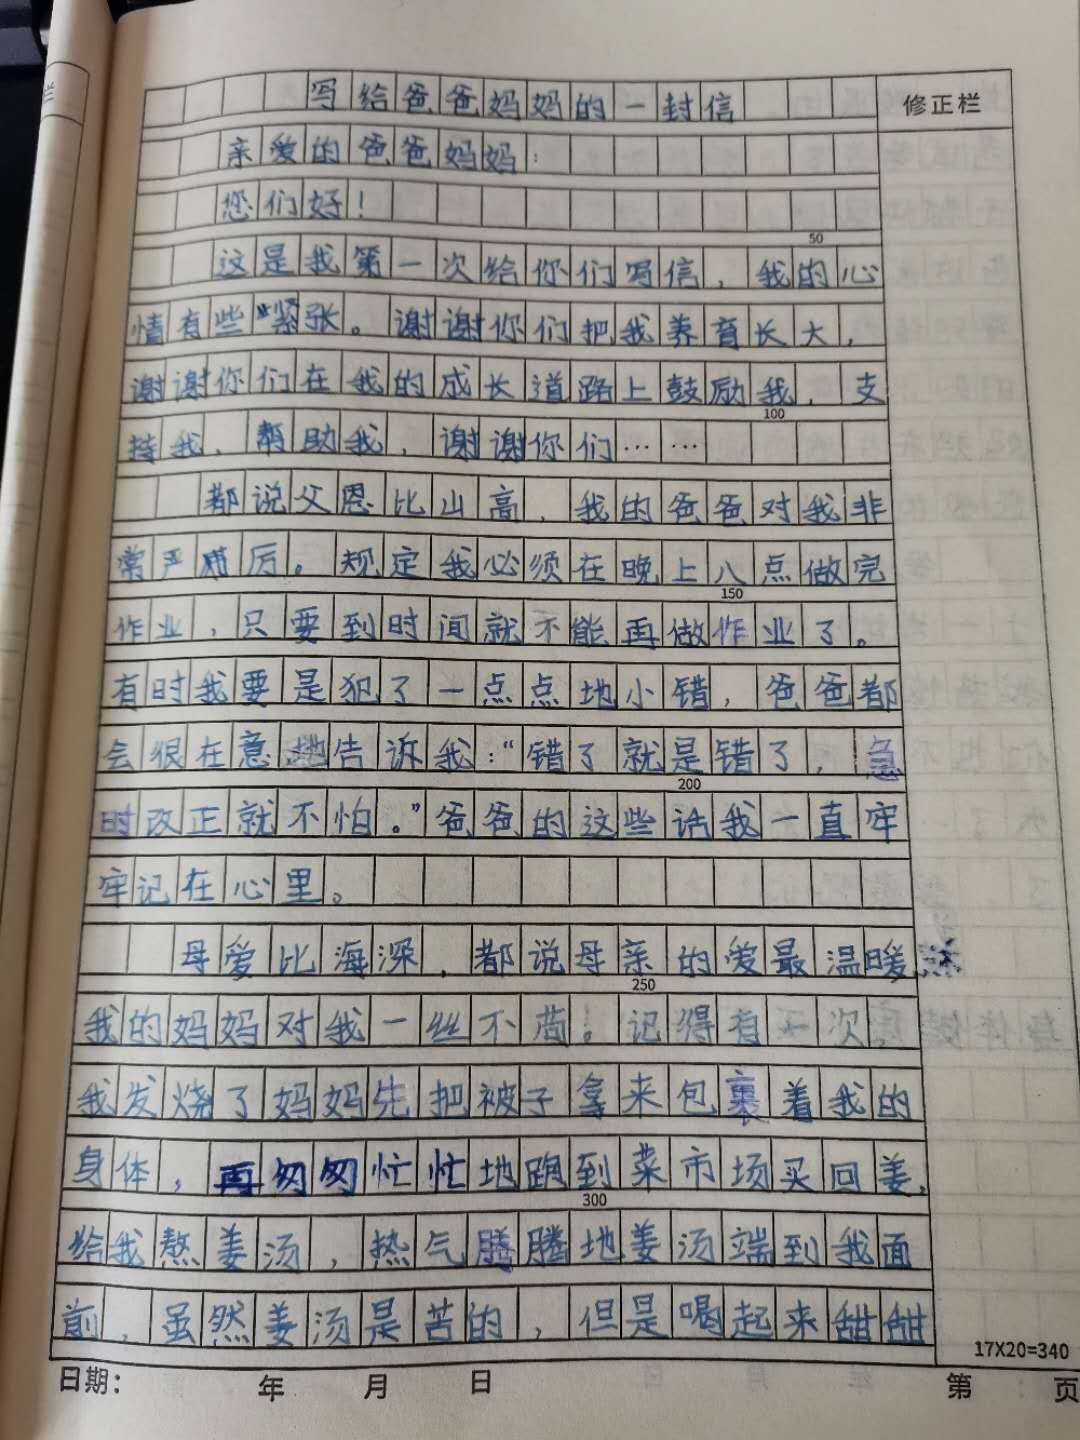 写给爸爸妈妈的一封信
修正栏
亲爱的爸爸妈妈：
您们好！
50
这是我第一次给你们写信，我的心
情有些紧张。谢谢你们把我养育长大，
谢谢你们在我的成长道路上鼓励我，支
100
持我，帮助我，谢谢你们……
都说父恩比山高，我的爸爸对我非
常严厉。规定我必须在晚上八点做完
150
作业，只要到时间就不能再做作业了。
有时我要是犯了一点点地小错，爸爸都
会狠在意地告诉我：“错了就是错了，急
200
时改正就不怕。”爸爸的这些话我一直牢
牢记在心里。
母爱比海深，都说母亲的爱最温暖
250
我的妈妈对我一丝不苟！记得有一次
我发烧了妈妈先把被子拿来包裹着我的
身体，再匆匆忙忙地跑到菜市场买回姜，
300
给我熬姜汤，热气腾腾地姜汤端到我面
前，虽然姜汤是苦的，但是喝起来甜甜
17X20=340
日期： 年 月 日 第 页